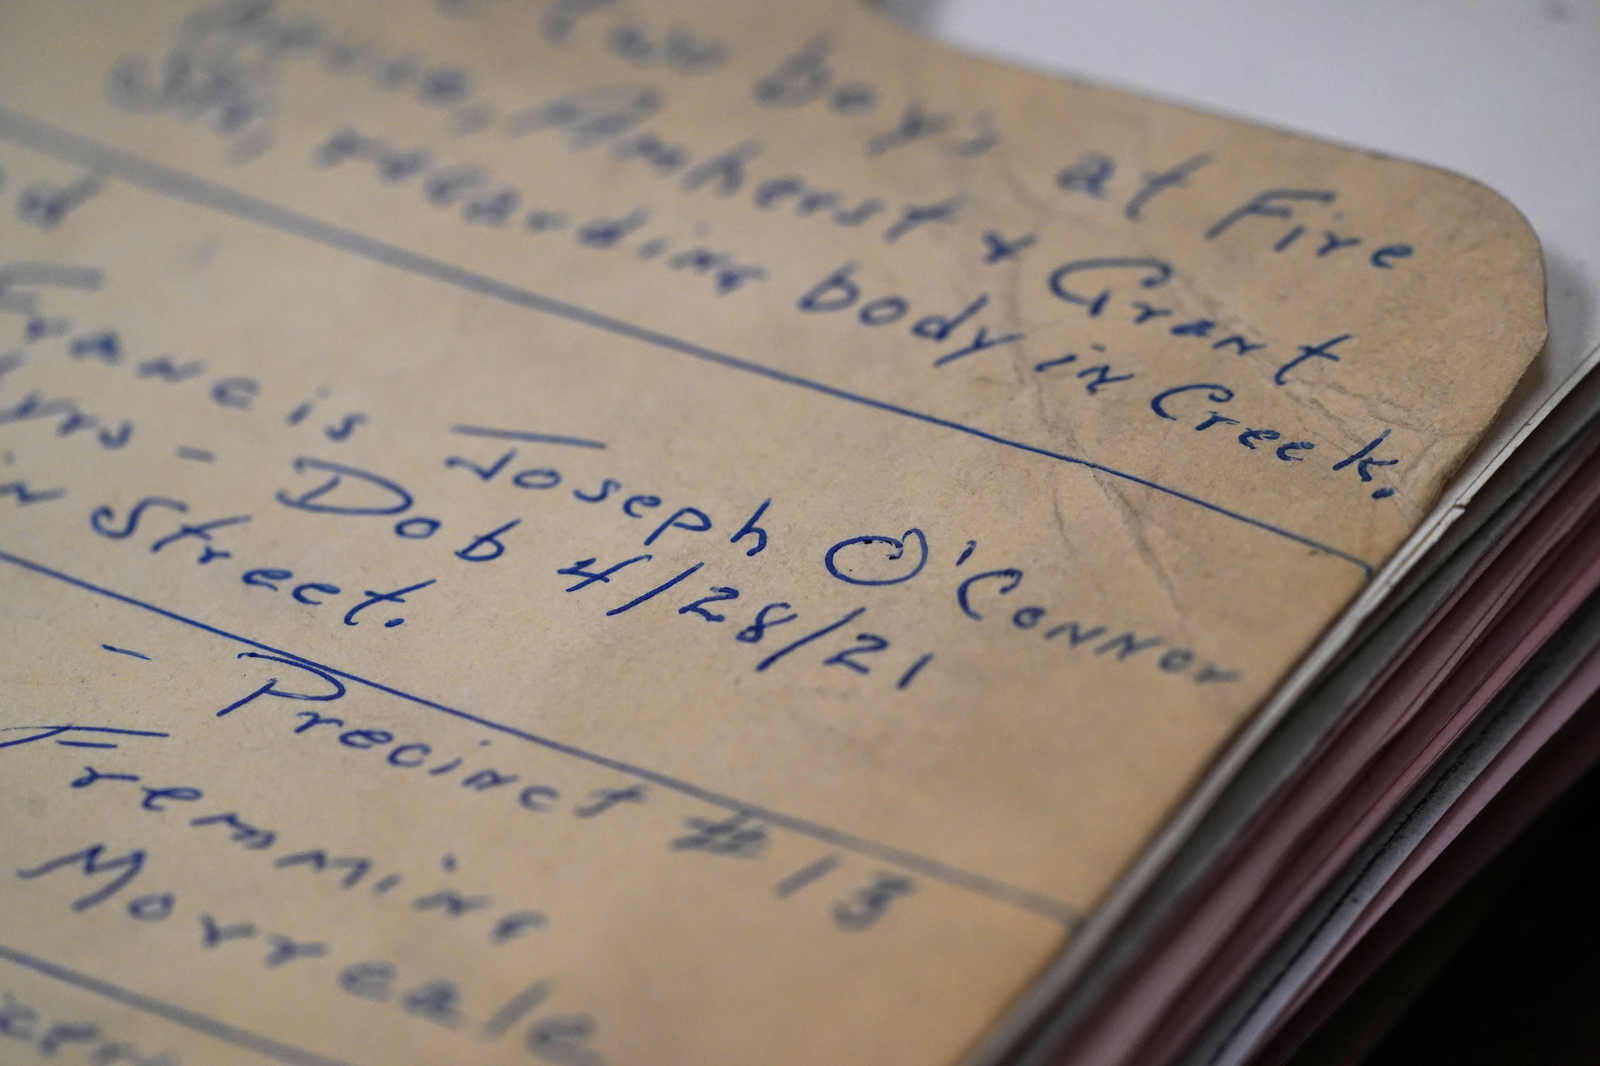 few boys at Fire
House, Amherst & Grant
Sts, regarding body in Creek.
is Joseph O'Connor
yrs - Dob 4/28/21
in Street.
- Precinct #13
Fremming
Morreale